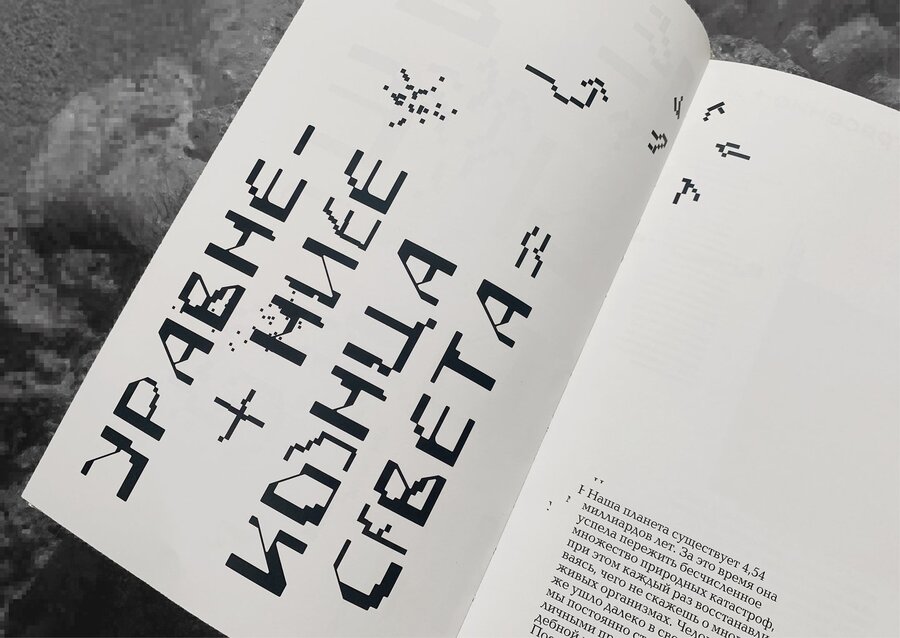 УРАВНЕ-
+ НИЕ
КОНЦА
СВЕТА=
Наша планета существует 4,54
миллиардов лет. За это время она
успела пережить бесчисленное
множество природных катастроф,
при этом каждый раз восстанавли-
ваясь, чего не скажешь о
живых организмах.
же ушло далеко в
мы постоянно
личными
дебной